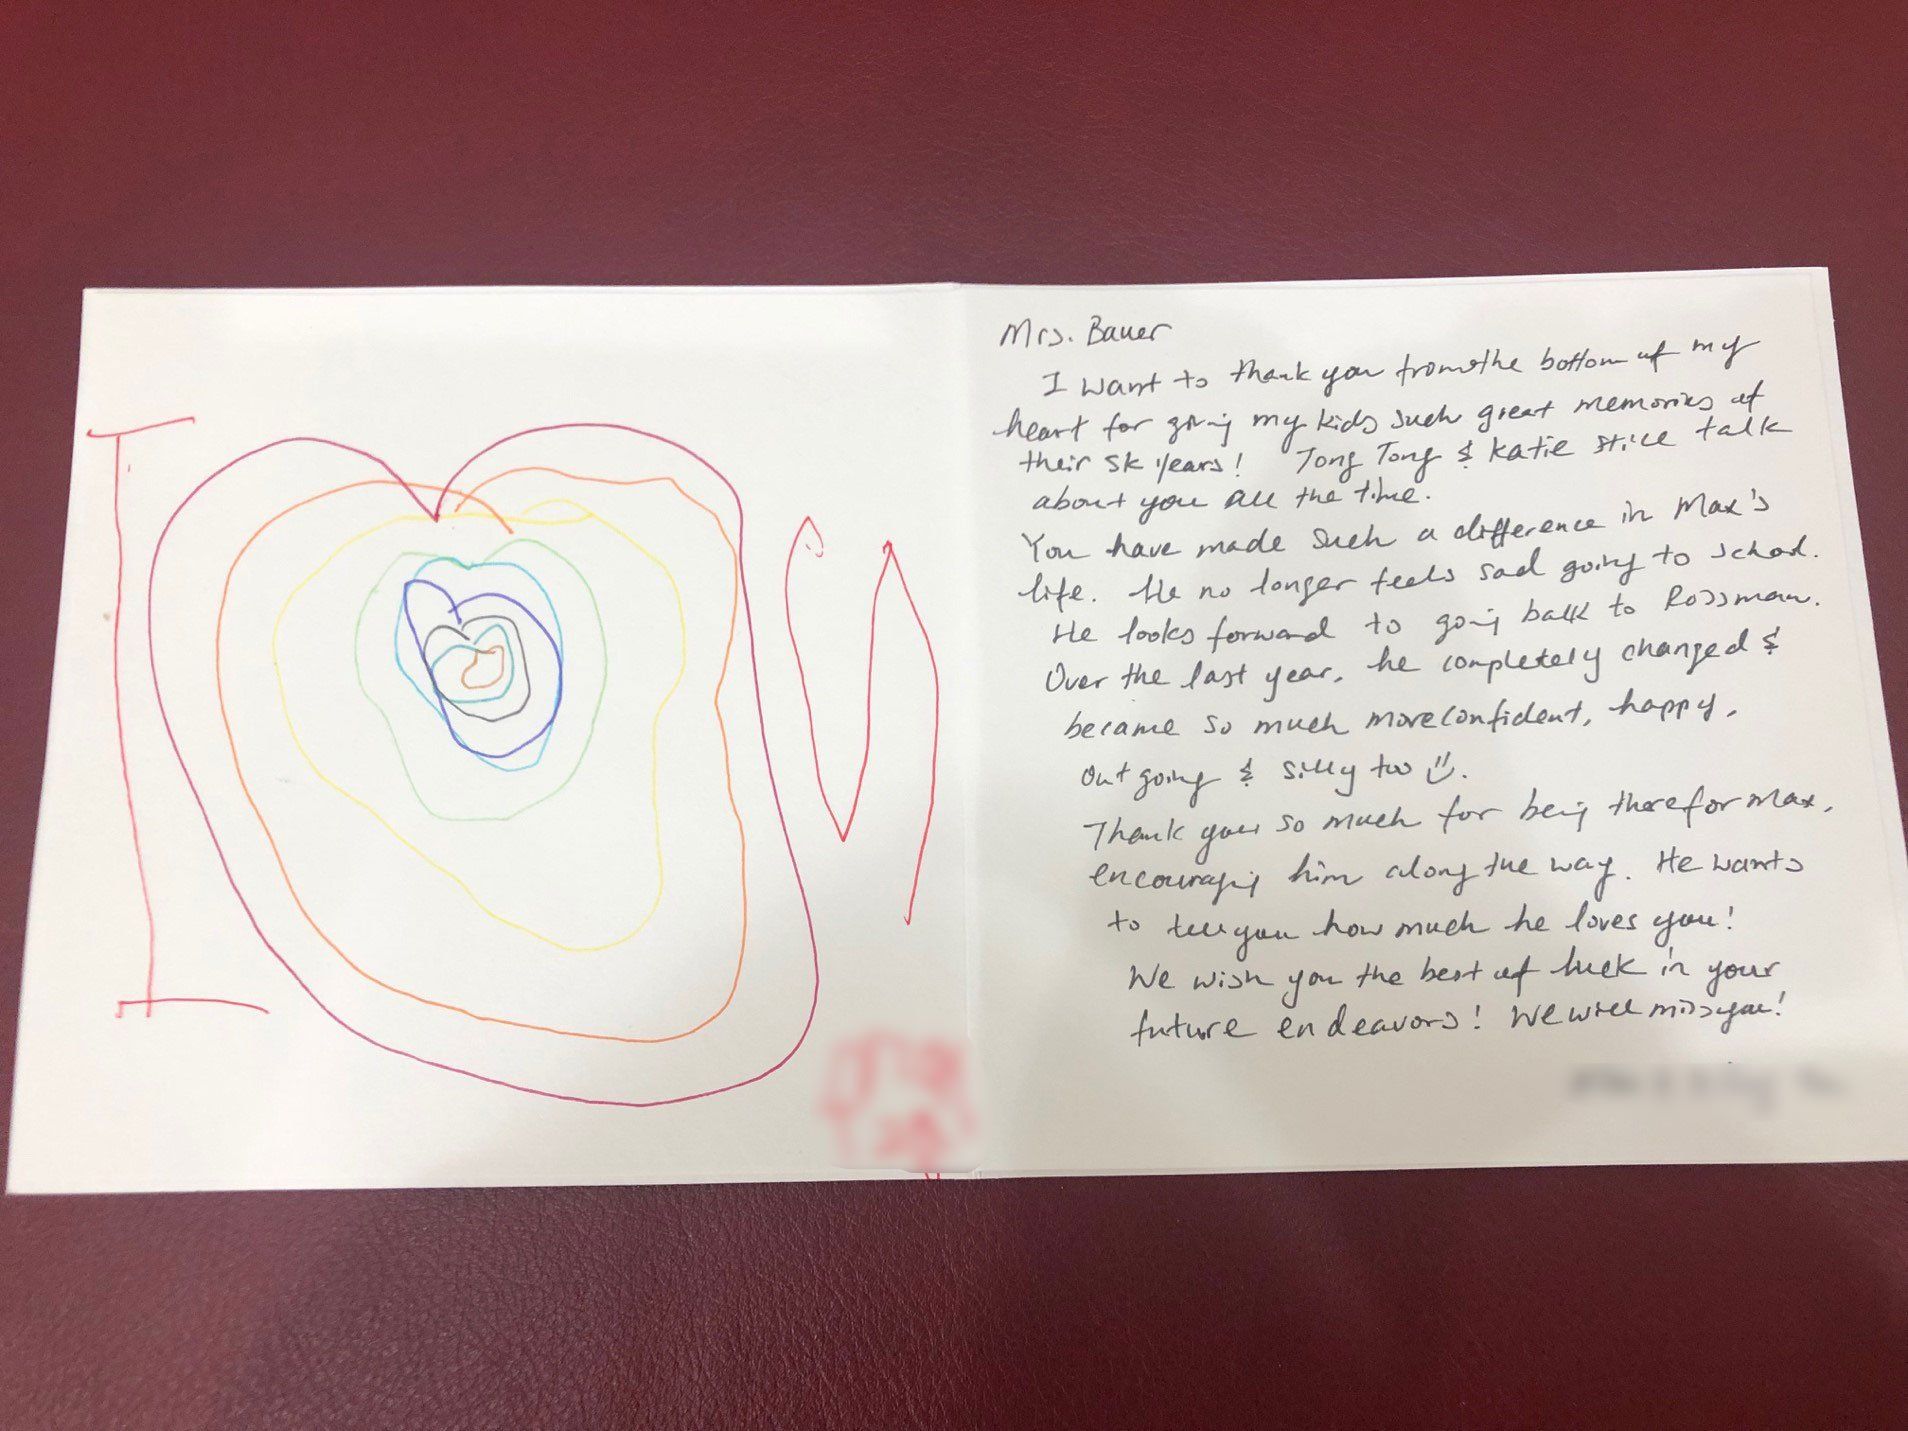 I U
Mrs. Bauer
I want to thank you from the bottom of my
heart for giving my kids such great memories of
their SK years! Tong Tong & Katie still talk
about you all the time.
You have made such a difference in Max's
life. He no longer feels sad going to school.
He looks forward to going back to Rossman.
Over the last year, he completely changed &
became so much more confident, happy,
outgoing & silly too
Thank you so much for being there for Max,
encouraging him along the way. He wants
to tell you how much he loves you!
We wish you the best of luck in your
future endeavors! We will miss you!